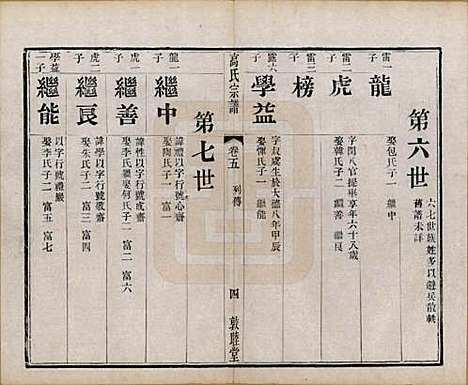 第六世
六七世族姓多以避兵散軼
舊譜未詳
雷一
子
龍
娶包氏子一 繼中
雷二
子
虎
字閏八官提東享年六十八歲
娶韓氏子二 繼善 繼良
雷三
子
榜
露六
子
學益
字叔虔生於大德八年甲辰
娶惲氏子一 繼能
高氏宗譜
卷五 列傳
四
敦睦堂
第七世
龍一
子
繼中
諱以字行號心齋
娶陶氏子一 富一
虎一
子
繼善
諱性以字行號戒齋
娶李氏繼娶何氏子二 富二 富六
虎二
子
繼良
諱學以字行號毅齋
娶朱氏子二 富三 富四
學益
一子
繼能
以字行號禮嚴
娶李氏子二 富五 富七